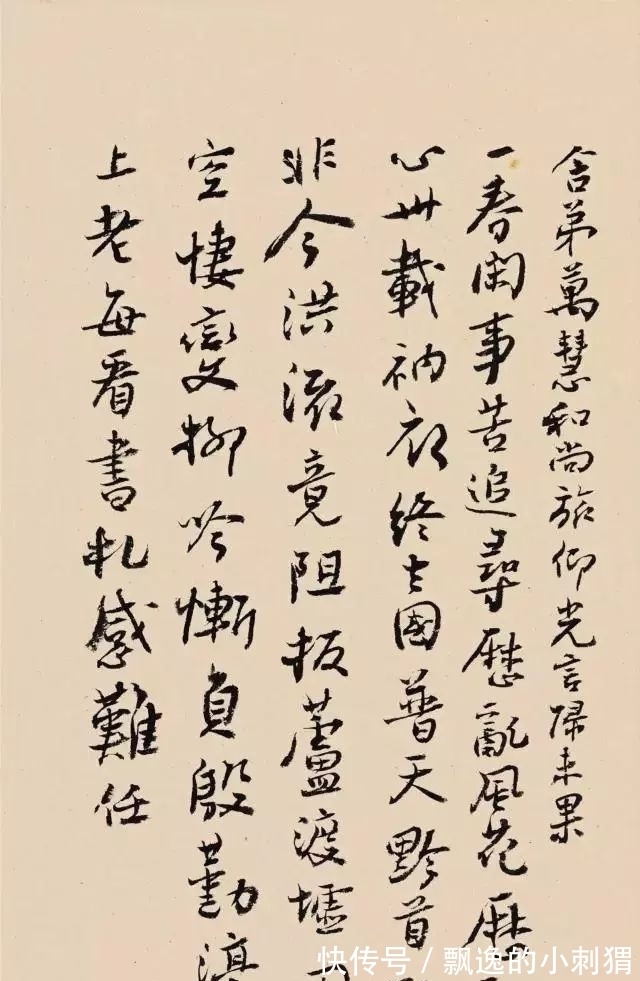 舍弟萬慧和尚旅仰光言歸未果
一春閑事苦追尋歷亂風花歷
心卅載衲衣終去國普天黔首
非今洪流竟阻折蘆渡墟
空悽變柳吟慚負殷勤滇
上老每看書札感難任
快传号/飘逸的小刺猬